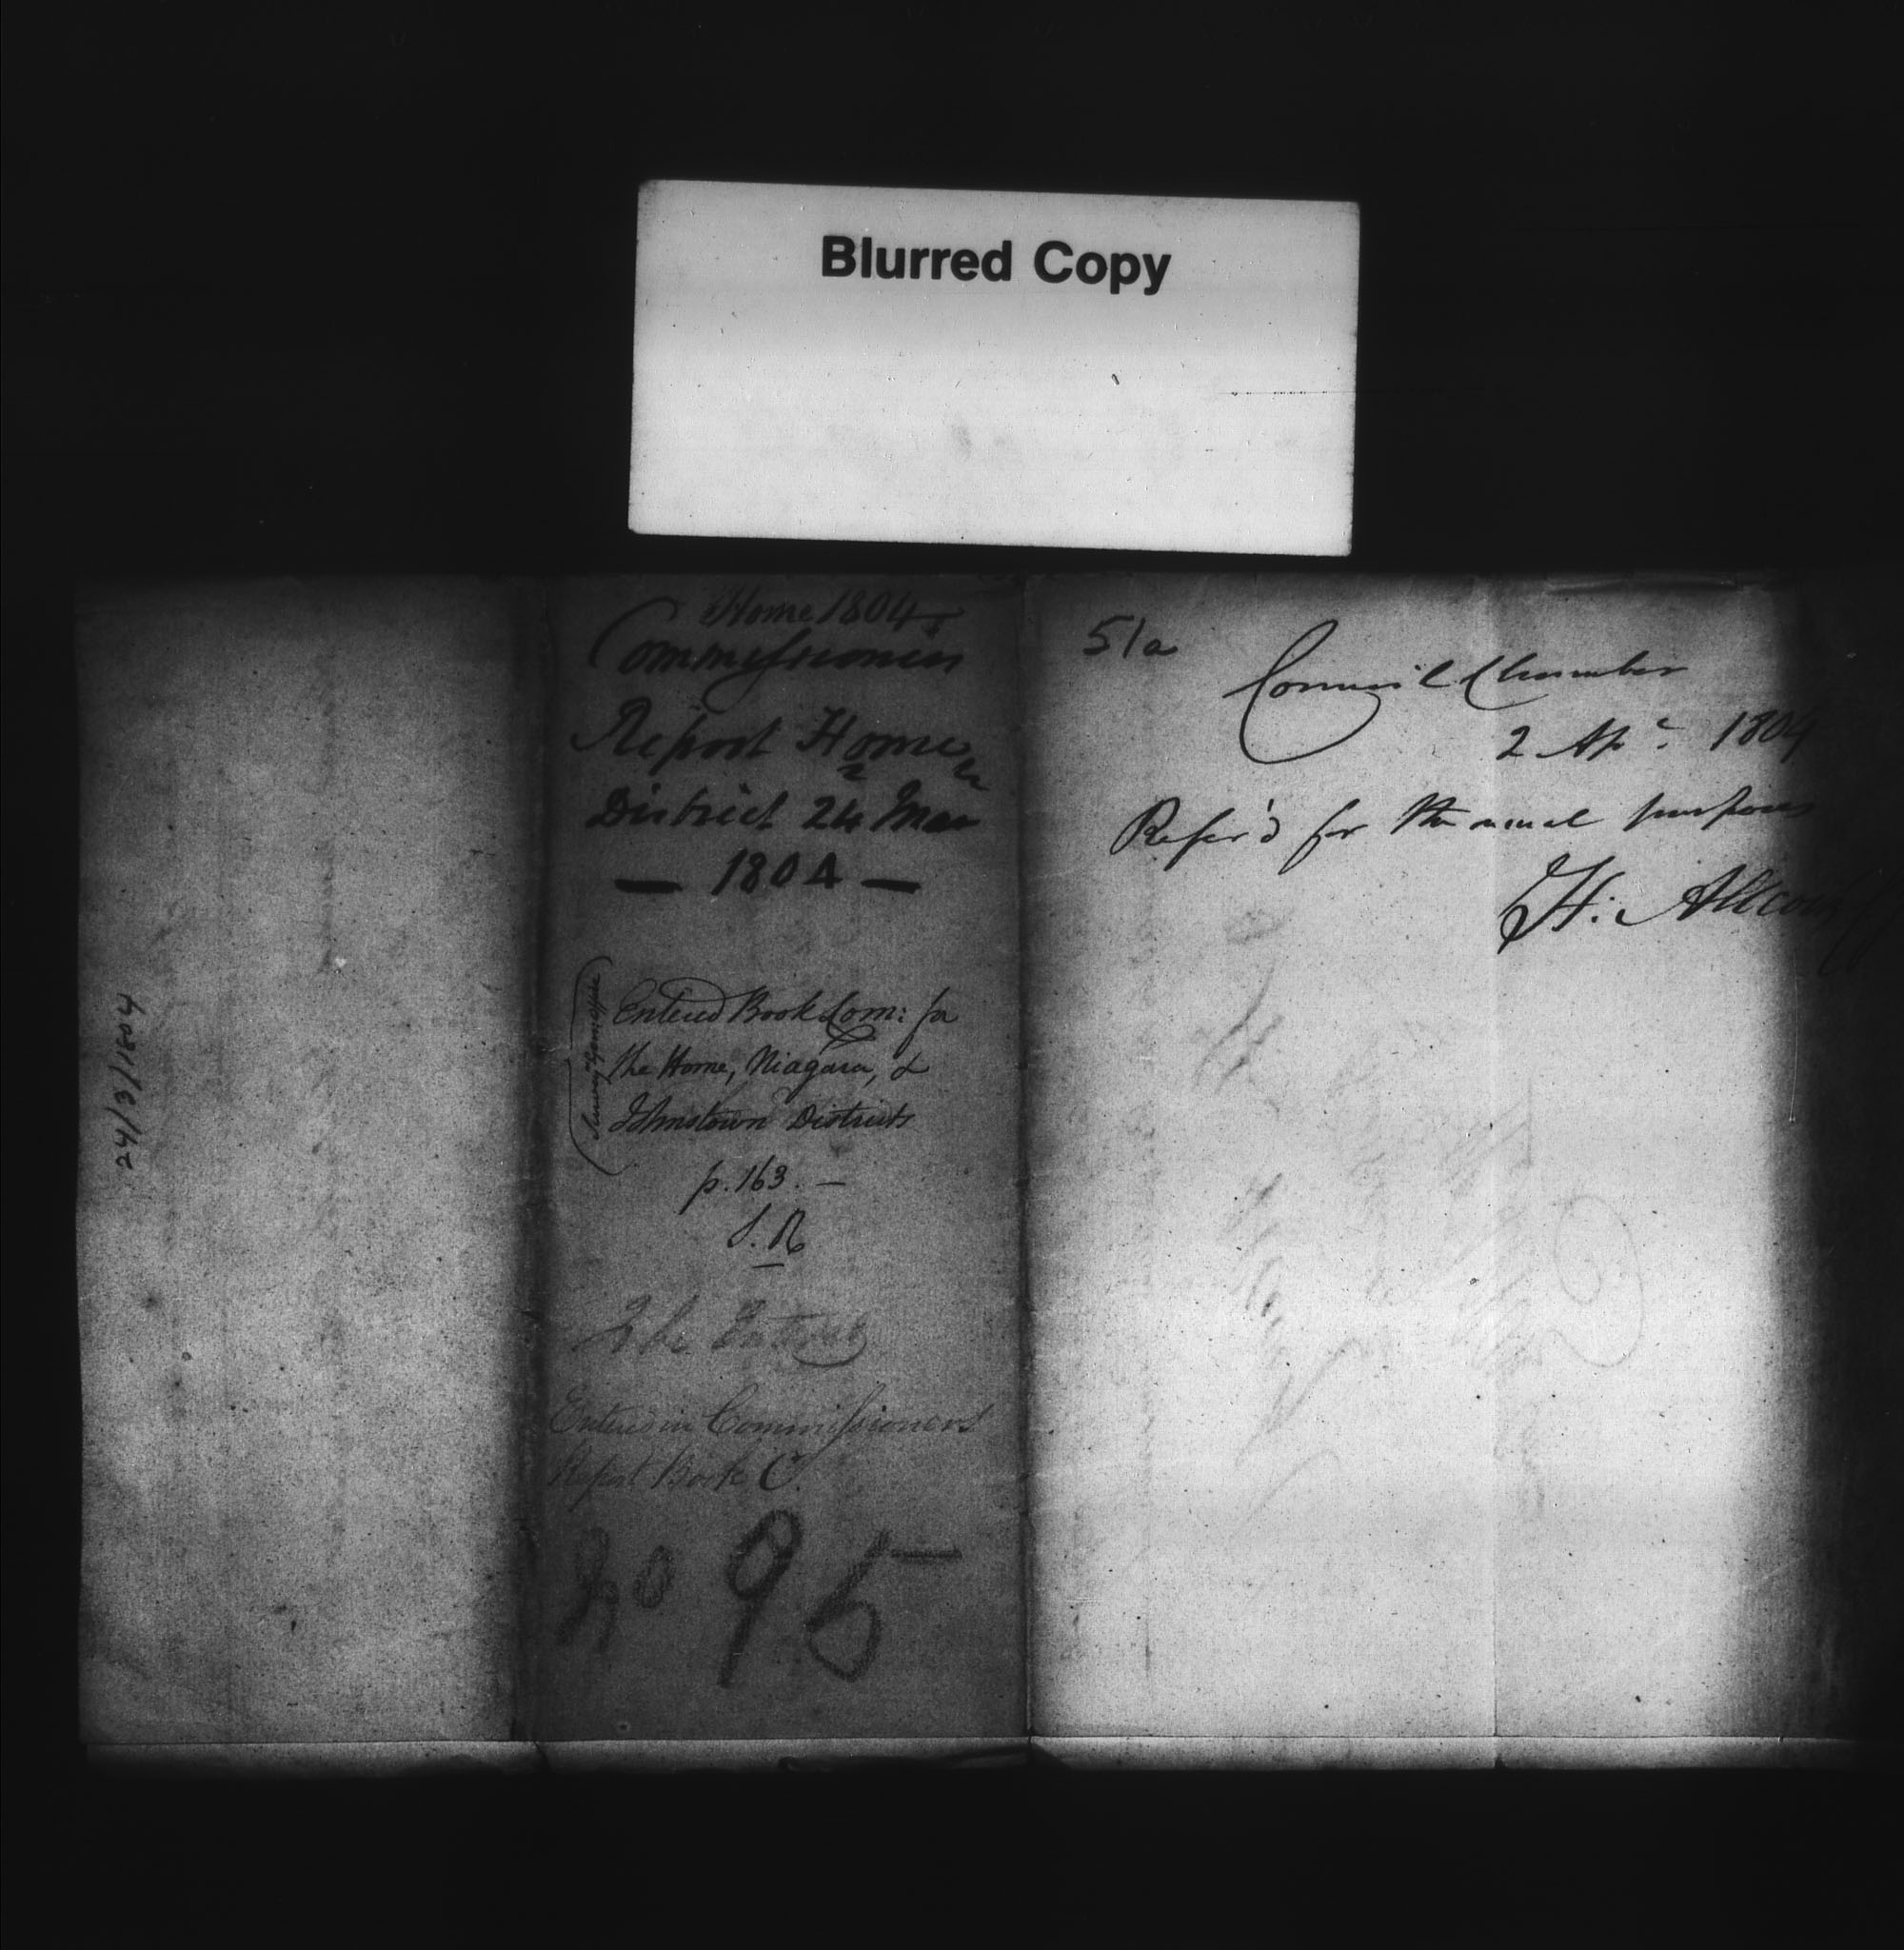 Blurred Copy
24/3/1804
Home 1804
Commissioners
Report Home
District 24 Mar
— 1804 —
Entered Book Com: for
the Home, Niagara, &
Johnstown Districts
p. 163. —
S. R
Entered
Entered in Commissioners
Report Book C.
No 95
51a
Council Chamber
2 Apr. 1804
Refer'd for the usual purposes
H: Allcock